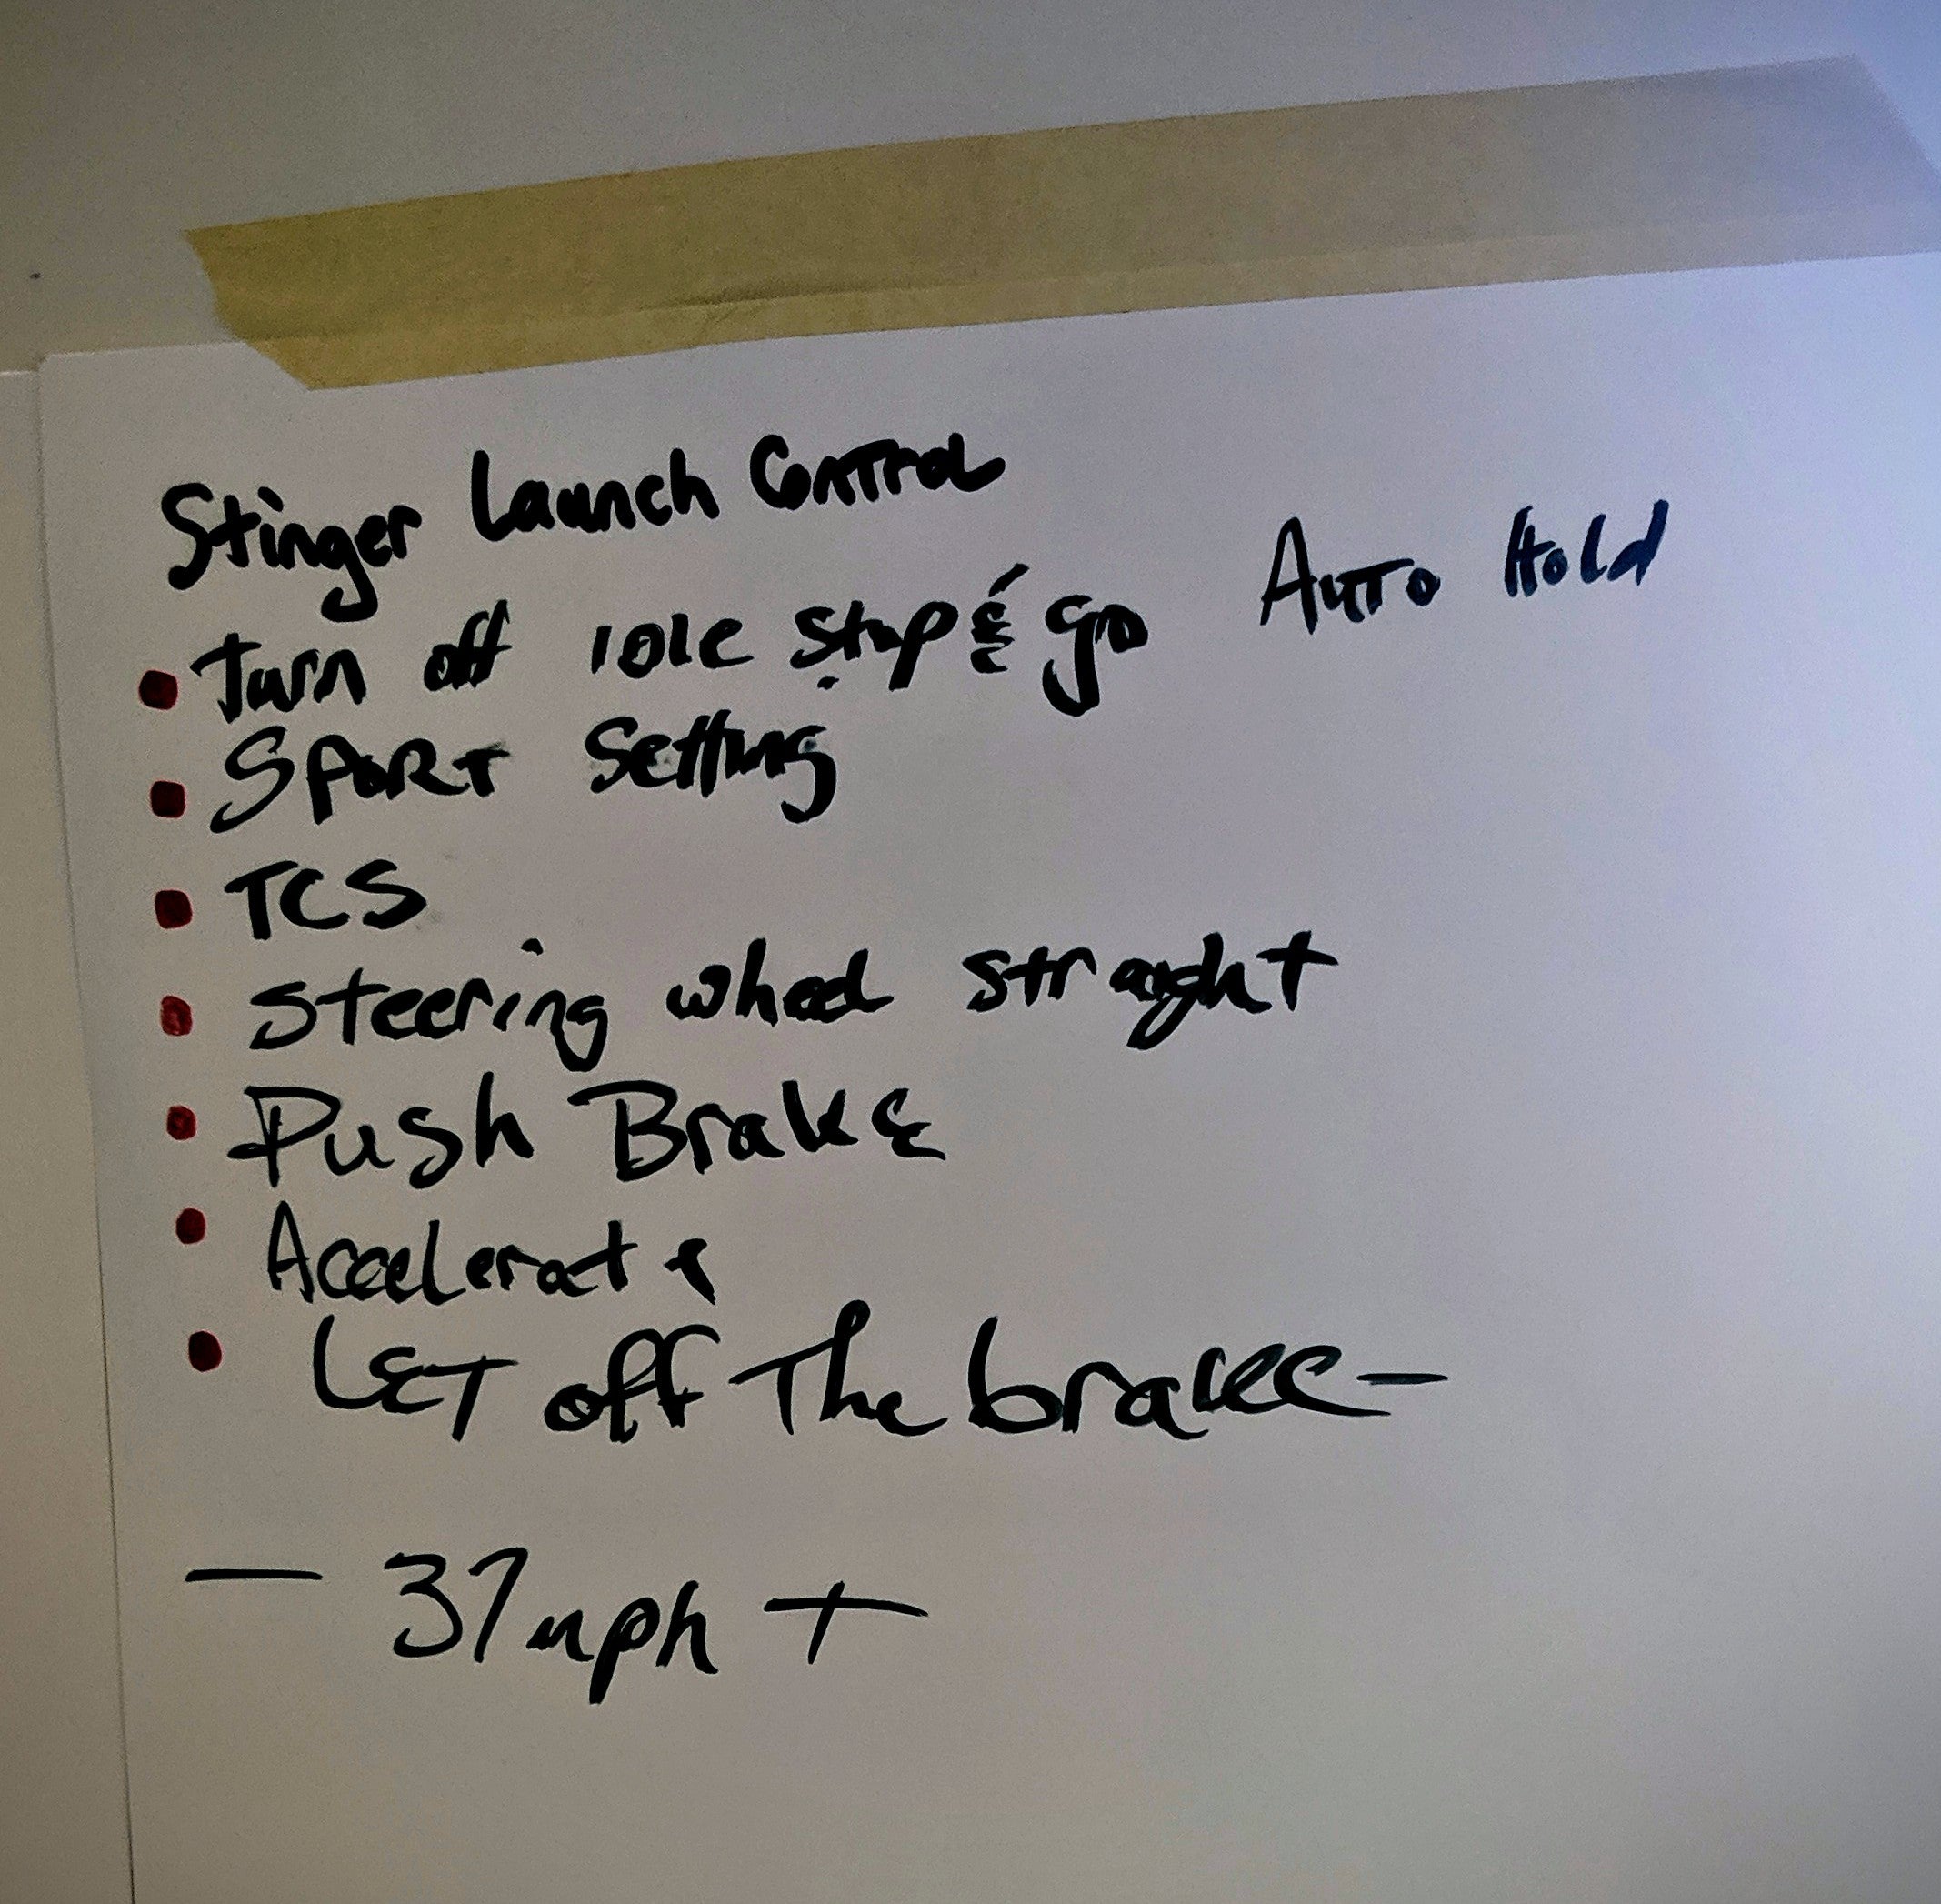 Stinger Launch Control
• Turn off Idle Stop & go Auto Hold
• Sport Setting
• TCS
• Steering wheel straight
• Push Brake
• Accelerate
• LET off The brake –
– 37 mph +